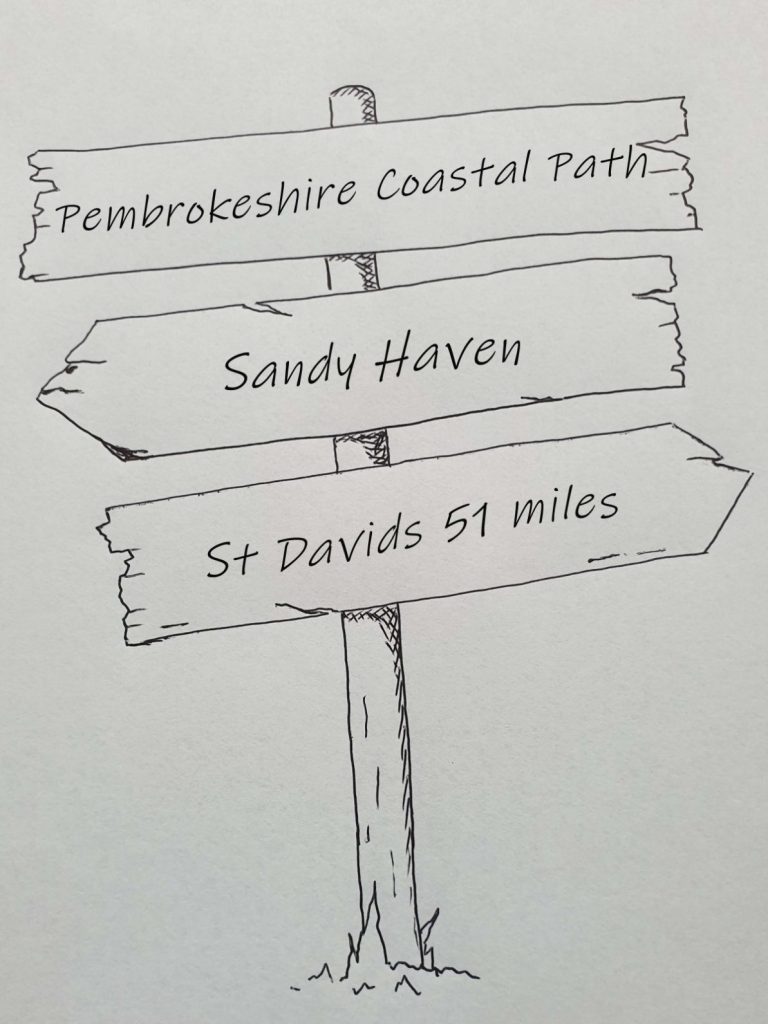 Pembrokeshire Coastal Path
Sandy Haven
St Davids 51 miles